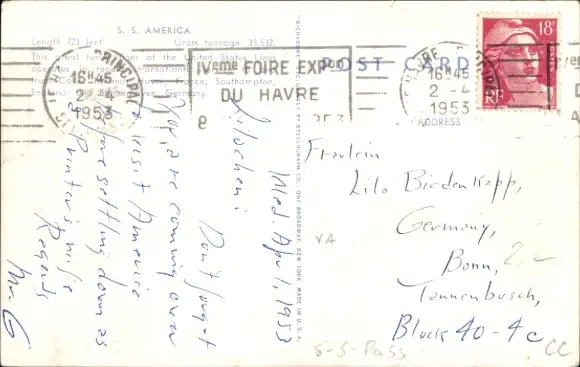 S. S. AMERICA
Length 723 feet Gross tonnage 33,532
This great luxury liner of the United States Lines
Southampton,
England; and Bremerhaven, Germany.
POST CARD
ADDRESS
PRINCIPAL
16H45
2 - 4
1953
IVeme FOIRE EXPon
DU HAVRE
HAVRE
16H45
2 - 4
1953
18F
POSTES
RF
Wed. Apr 1, 1953
Don't forget
you are coming over
to visit America
before settling down as
Regards
Fraulein
Lilo Biedenkapp,
Germany,
Bonn,
Tannenbusch,
Block 40-4c
VA
S-S-Pass
CC
BY STEELOGRAPH CO., ONE BROADWAY, NEW YORK. MADE IN U.S.A.